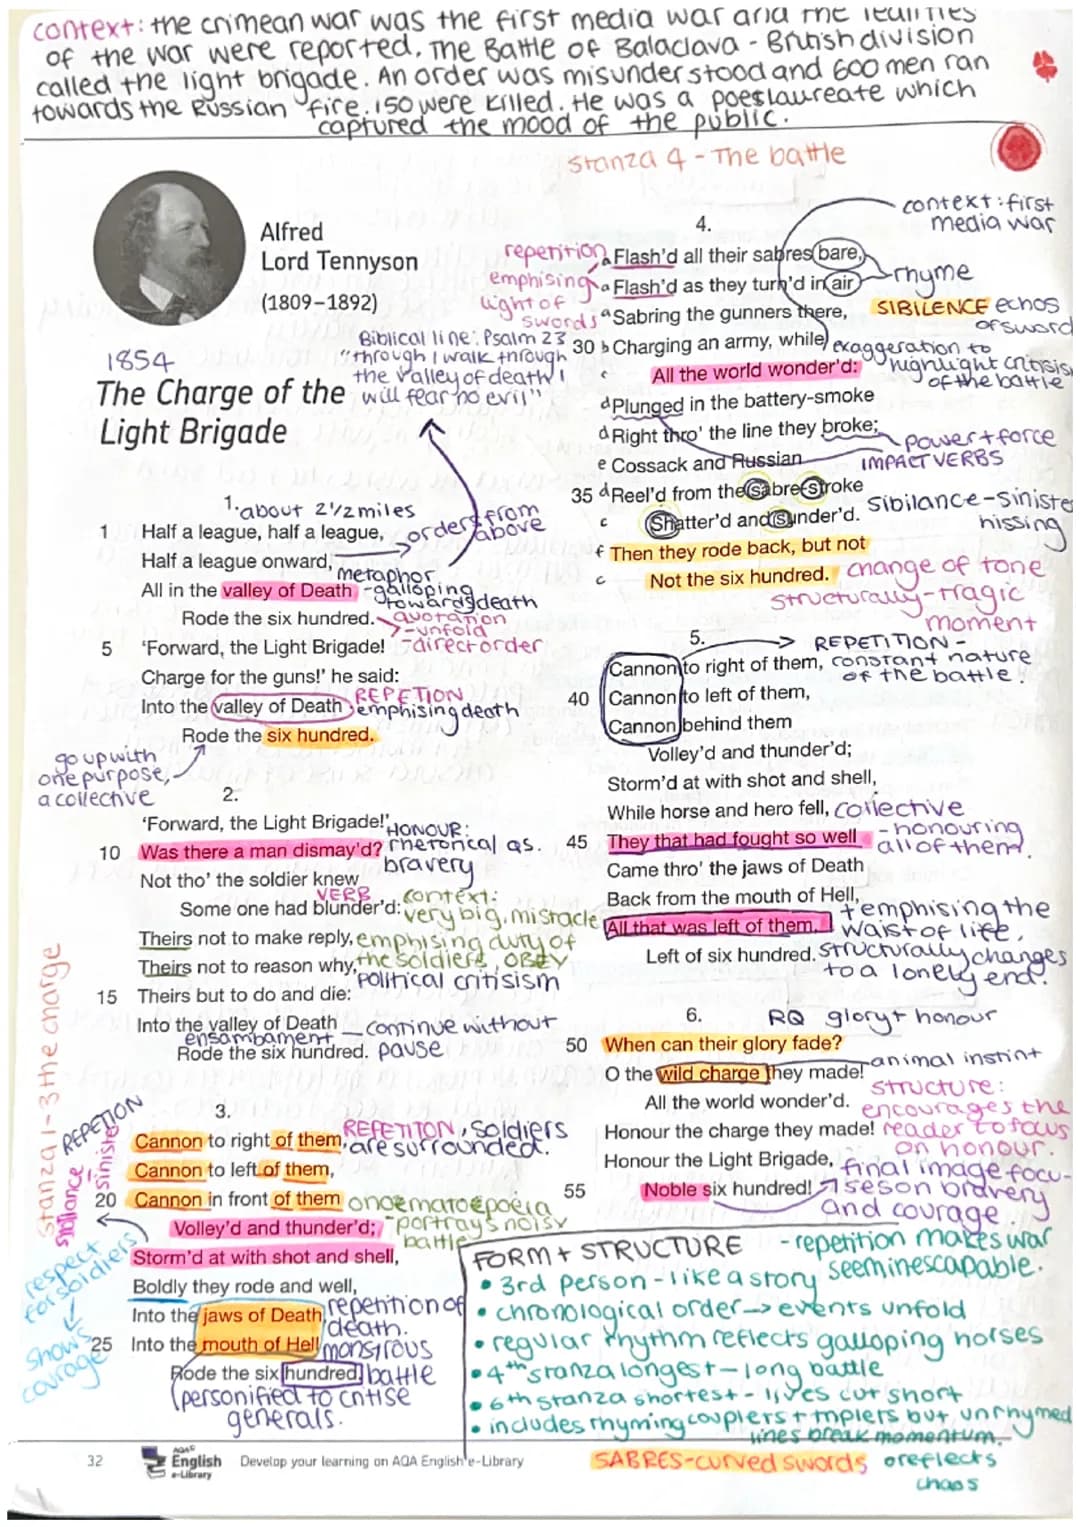 context: the crimean war was the first media war and the realities
of the war were reported. The Battle of Balaclava - British division
called the light brigade. An order was misunderstood and 600 men ran
towards the Russian fire. 150 were killed. He was a poeslaureate which
captured the mood of the public.
Stanza 4 - The battle
Alfred
Lord Tennyson
(1809–1892)
1854
The Charge of the
Light Brigade
Biblical line: Psalm 23
"through I walk through
the valley of death I
will fear no evil"
1.
about 2½ miles
1 Half a league, half a league,
orders from
above
Half a league onward,
metaphor
All in the valley of Death
-galloping
towards death
Rode the six hundred.
quotation
-unfold
5 ‘Forward, the Light Brigade!
-direct order
Charge for the guns!’ he said:
Into the valley of Death
REPETION
emphising death
Rode the six hundred.
go up with
one purpose,
a collective
2.
‘Forward, the Light Brigade!’
HONOUR:
10 Was there a man dismay’d?
rhetorical qs.
bravery
Not tho’ the soldier knew
VERB
Some one had blunder’d:
context:
very big, mistacle
Theirs not to make reply,
emphising duty of
Theirs not to reason why,
the soldiers, OBEY
political critisism
15 Theirs but to do and die:
Into the valley of Death
ensambament
continue without
pause
Rode the six hundred.
Stanza 1-3 the charge
3.
REPETION
sinister
Cannon to right of them,
REPETITON, soldiers
are surrounded.
Cannon to left of them,
20 Cannon in front of them
onoematoepoeia
-portrays noisy
battle
Volley’d and thunder’d;
Storm’d at with shot and shell,
respect
for soldiers
shows
courage
Boldly they rode and well,
Into the jaws of Death,
repetition of
death.
25 Into the mouth of Hell
monstrous
battle
Rode the six hundred.
personified to critise
generals.
4.
context: first
media war
repetition
emphising
light of
swords
a Flash’d all their sabres bare,
a Flash’d as they turn’d in air
rhyme
a Sabring the gunners there,
SIBILENCE echos
of sword
30 b Charging an army, while
exaggeration to
highlight critisis
of the battle
c All the world wonder’d:
d Plunged in the battery-smoke
d Right thro’ the line they broke;
power + force
IMPACT VERBS
e Cossack and Russian
35 d Reel’d from the sabre-stroke
Sibilance-siniste
hissing
c Shatter’d and sunder’d.
f Then they rode back, but not
c Not the six hundred.
change of tone
structurally-tragic
moment
5.
REPETITION -
constant nature
of the battle.
Cannon to right of them,
40 Cannon to left of them,
Cannon behind them
Volley’d and thunder’d;
Storm’d at with shot and shell,
While horse and hero fell,
collective
- honouring
all of them.
45 They that had fought so well
Came thro’ the jaws of Death
Back from the mouth of Hell,
All that was left of them,
+ emphising the
waist of life.
Left of six hundred.
structurally changes
to a lonely end.
6.
RQ glory + honour
50 When can their glory fade?
O the wild charge they made!
animal instint
All the world wonder’d.
structure:
encourages the
reader to focus
on honour.
Honour the charge they made!
Honour the Light Brigade,
final image focu-
seson bravery
and courage.
55 Noble six hundred!
FORM + STRUCTURE
- repetition makes war
seem inescapable.
• 3rd person - like a story
• chronological order → events unfold
• regular rhythm reflects galloping horses
• 4th stanza longest - long battle
• 6th stanza shortest - lives cut short
• includes rhyming couplers + triplers but unrhymed
lines break momentum.
oreflects
chaos
SABRES-curved swords
32
AQA
English
e-Library
Develop your learning on AQA English e-Library